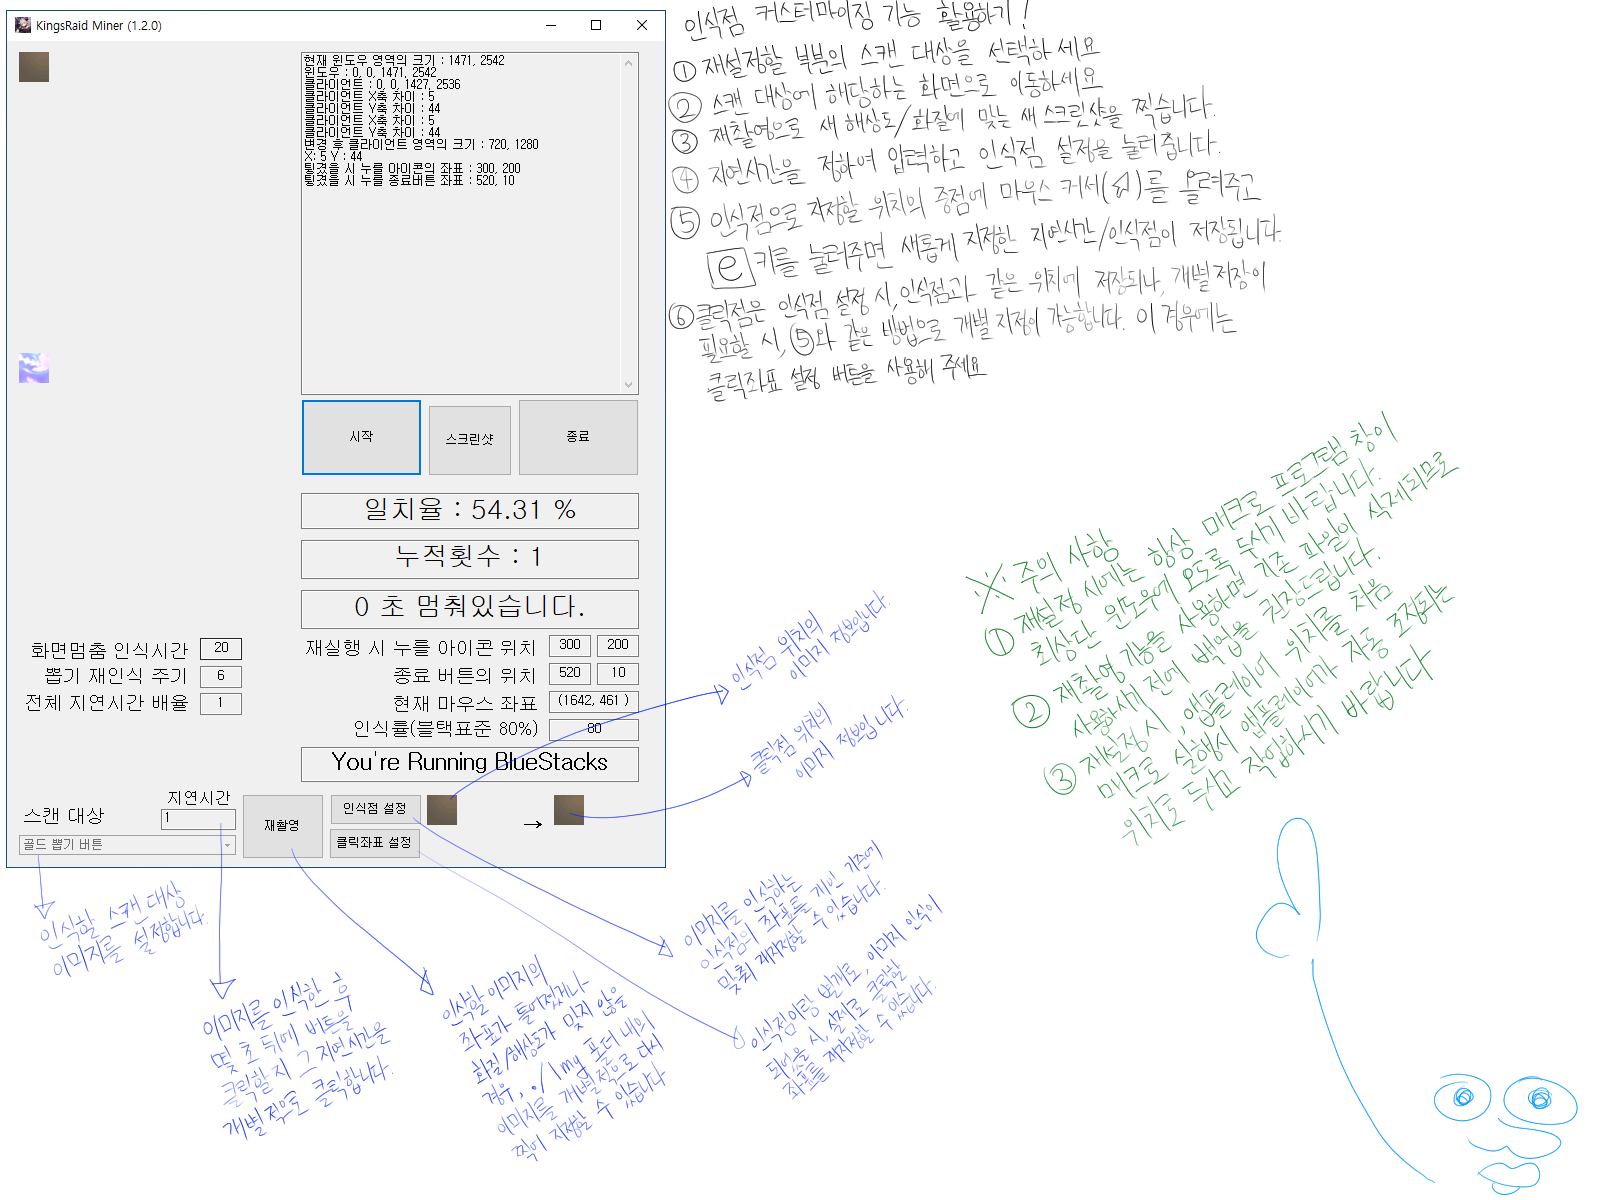 KingsRaid Miner (1.2.0)
현재 윈도우 영역의 크기 : 1471, 2542
윈도우 : 0, 0, 1471, 2542
클라이언트 : 0, 0, 1427, 2536
클라이언트 X축 차이 : 5
클라이언트 Y축 차이 : 44
클라이언트 X축 차이 : 5
클라이언트 Y축 차이 : 44
변경 후 클라이언트 영역의 크기 : 720, 1280
X: 5 Y : 44
튕겼을 시 누를 아이콘의 좌표 : 300, 200
튕겼을 시 누를 종료버튼 좌표 : 520, 10
시작
스크린샷
종료
일치율 : 54.31 %
누적횟수 : 1
0 초 멈춰있습니다.
화면멈춤 인식시간 20
뽑기 재인식 주기 6
전체 지연시간 배율 1
재실행 시 누를 아이콘 위치 300 200
종료 버튼의 위치 520 10
현재 마우스 좌표 (1642, 461 )
인식률(블택표준 80%) 80
You're Running BlueStacks
스캔 대상
지연시간
1
골드 뽑기 버튼
재촬영
인식점 설정
클릭좌표 설정
→
인식점 커스터마이징 기능 활용하기!
① 재설정할 부분의 스캔 대상을 선택하세요
② 스캔 대상에 해당하는 화면으로 이동하세요
③ 재촬영으로 새 해상도/화질에 맞는 새 스크릿샷을 찍습니다.
④ 지연시간을 정하여 입력하고 인식점 설정을 눌러줍니다.
⑤ 인식점으로 지정할 위치의 중점에 마우스 커서( )를 올려주고
e 키를 눌러주면 새롭게 지정한 지연시간/인식점이 저장됩니다.
⑥ 클릭점은 인식점 설정 시, 인식점과 같은 위치에 저장되나, 개별저장이
필요할 시, ⑤와 같은 방법으로 개별 지정이 가능합니다. 이 경우에는
클릭좌표 설정 버튼을 사용해 주세요
※ 주의 사항
① 재설정 시에는 항상 매크로 프로그램 창이
최상단 윈도우에 오도록 두시기 바랍니다.
② 재촬영 기능을 사용하면 기존 파일이 삭제되므로
사용하시기 전에 백업을 권장드립니다.
③ 재설정 시, 앱플레이어 위치를 처음
매크로 실행시 앱플레이어가 자동 조정되는
위치로 두시고 작업하시기 바랍니다
인식점 위치의
이미지 정보입니다.
클릭점 위치의
이미지 정보입니다.
인식할 스캔 대상
이미지를 설정합니다.
이미지를 인식한 후
몇 초 뒤에 버튼을
클릭할지 그 지연시간을
개별적으로 클릭합니다.
인식할 이미지의
좌표가 틀어졌거나
화질/해상도가 맞지 않을
경우, ./img 폴더 내의
이미지를 개별적으로 다시
찍어 지정할 수 있습니다
이미지를 인식하는
인식점의 좌표를 개인 기준에
맞춰 재지정할 수 있습니다.
인식점이랑 별개로, 이미지 인식이
되었을 시, 실제로 클릭할
좌표를 재지정할 수 있습니다.